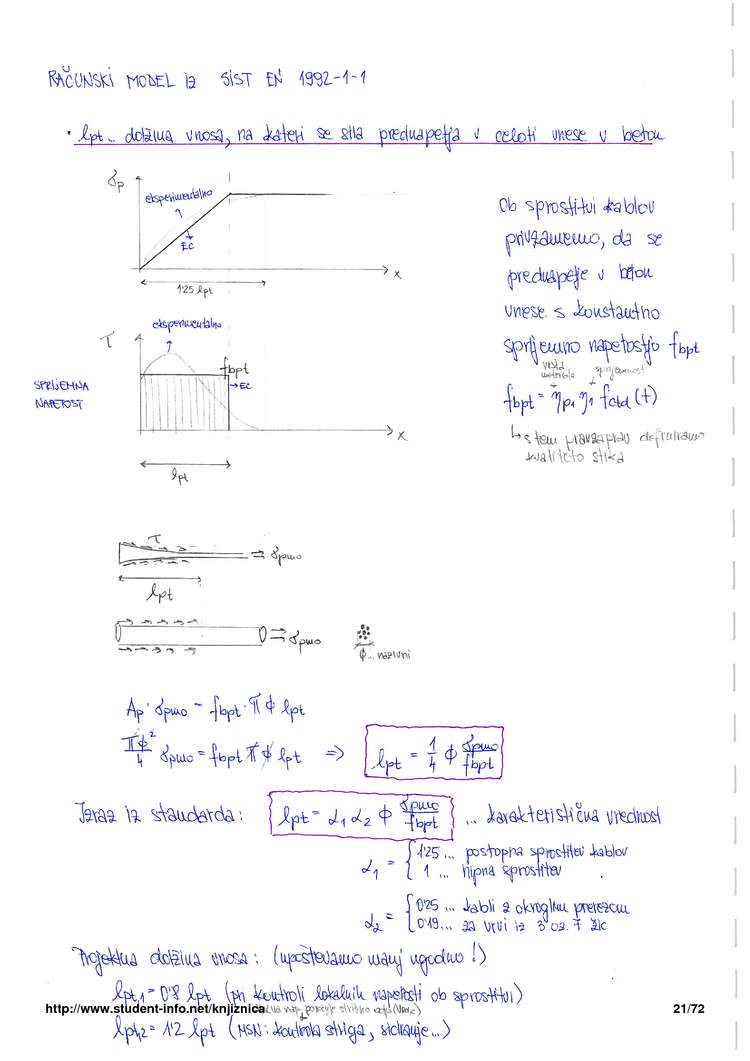 RAČUNSKI MODEL IZ SIST EN 1992-1-1
• lpt... dolžina vnosa, na kateri se sila prednapetja v celoti vnese v beton
σp
eksperimentalno
EC
x
1'25 lpt
Ob sprostitvi kablov
privzamemo, da se
prednapetje v beton
vnese s konstantno
sprijemno napetostjo fbpt
vrsta materiala
sprijemnost
fbpt = ηp1 η1 fctd(t)
↳ s tem pravzaprav definiramo
kvaliteto stika
eksperimentalno
τ
fbpt
→ EC
SPRIJEMNA
NAPETOST
x
lpt
τ
⇒ σpmo
lpt
⇒ σpmo
φ... nazivni
Ap · σpmo = fbpt · π φ lpt
πφ²/4 σpmo = fbpt π φ lpt ⇒ lpt = 1/4 φ σpmo/fbpt
Izraz iz standarda: lpt = α1 α2 φ σpmo/fbpt ... karakteristična vrednost
α1 = { 1'25 ... postopna sprostitev kablov
1 ... hipna sprostitev
α2 = { 0'25 ... kabli z okroglim prerezom
0'19 ... za vrvi iz 3 oz. 7 žic
Projektna dolžina vnosa: (upoštevamo manj ugodno!)
lpt,1 = 0'8 lpt (pri kontroli lokalnih napetosti ob sprostitvi)
http://www.student-info.net/knjiznica
21/72
lpt,2 = 1'2 lpt (MSN: kontrola striga, sidranje...)